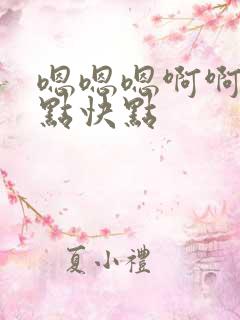 嗯嗯嗯啊啊
點快點
夏小禮